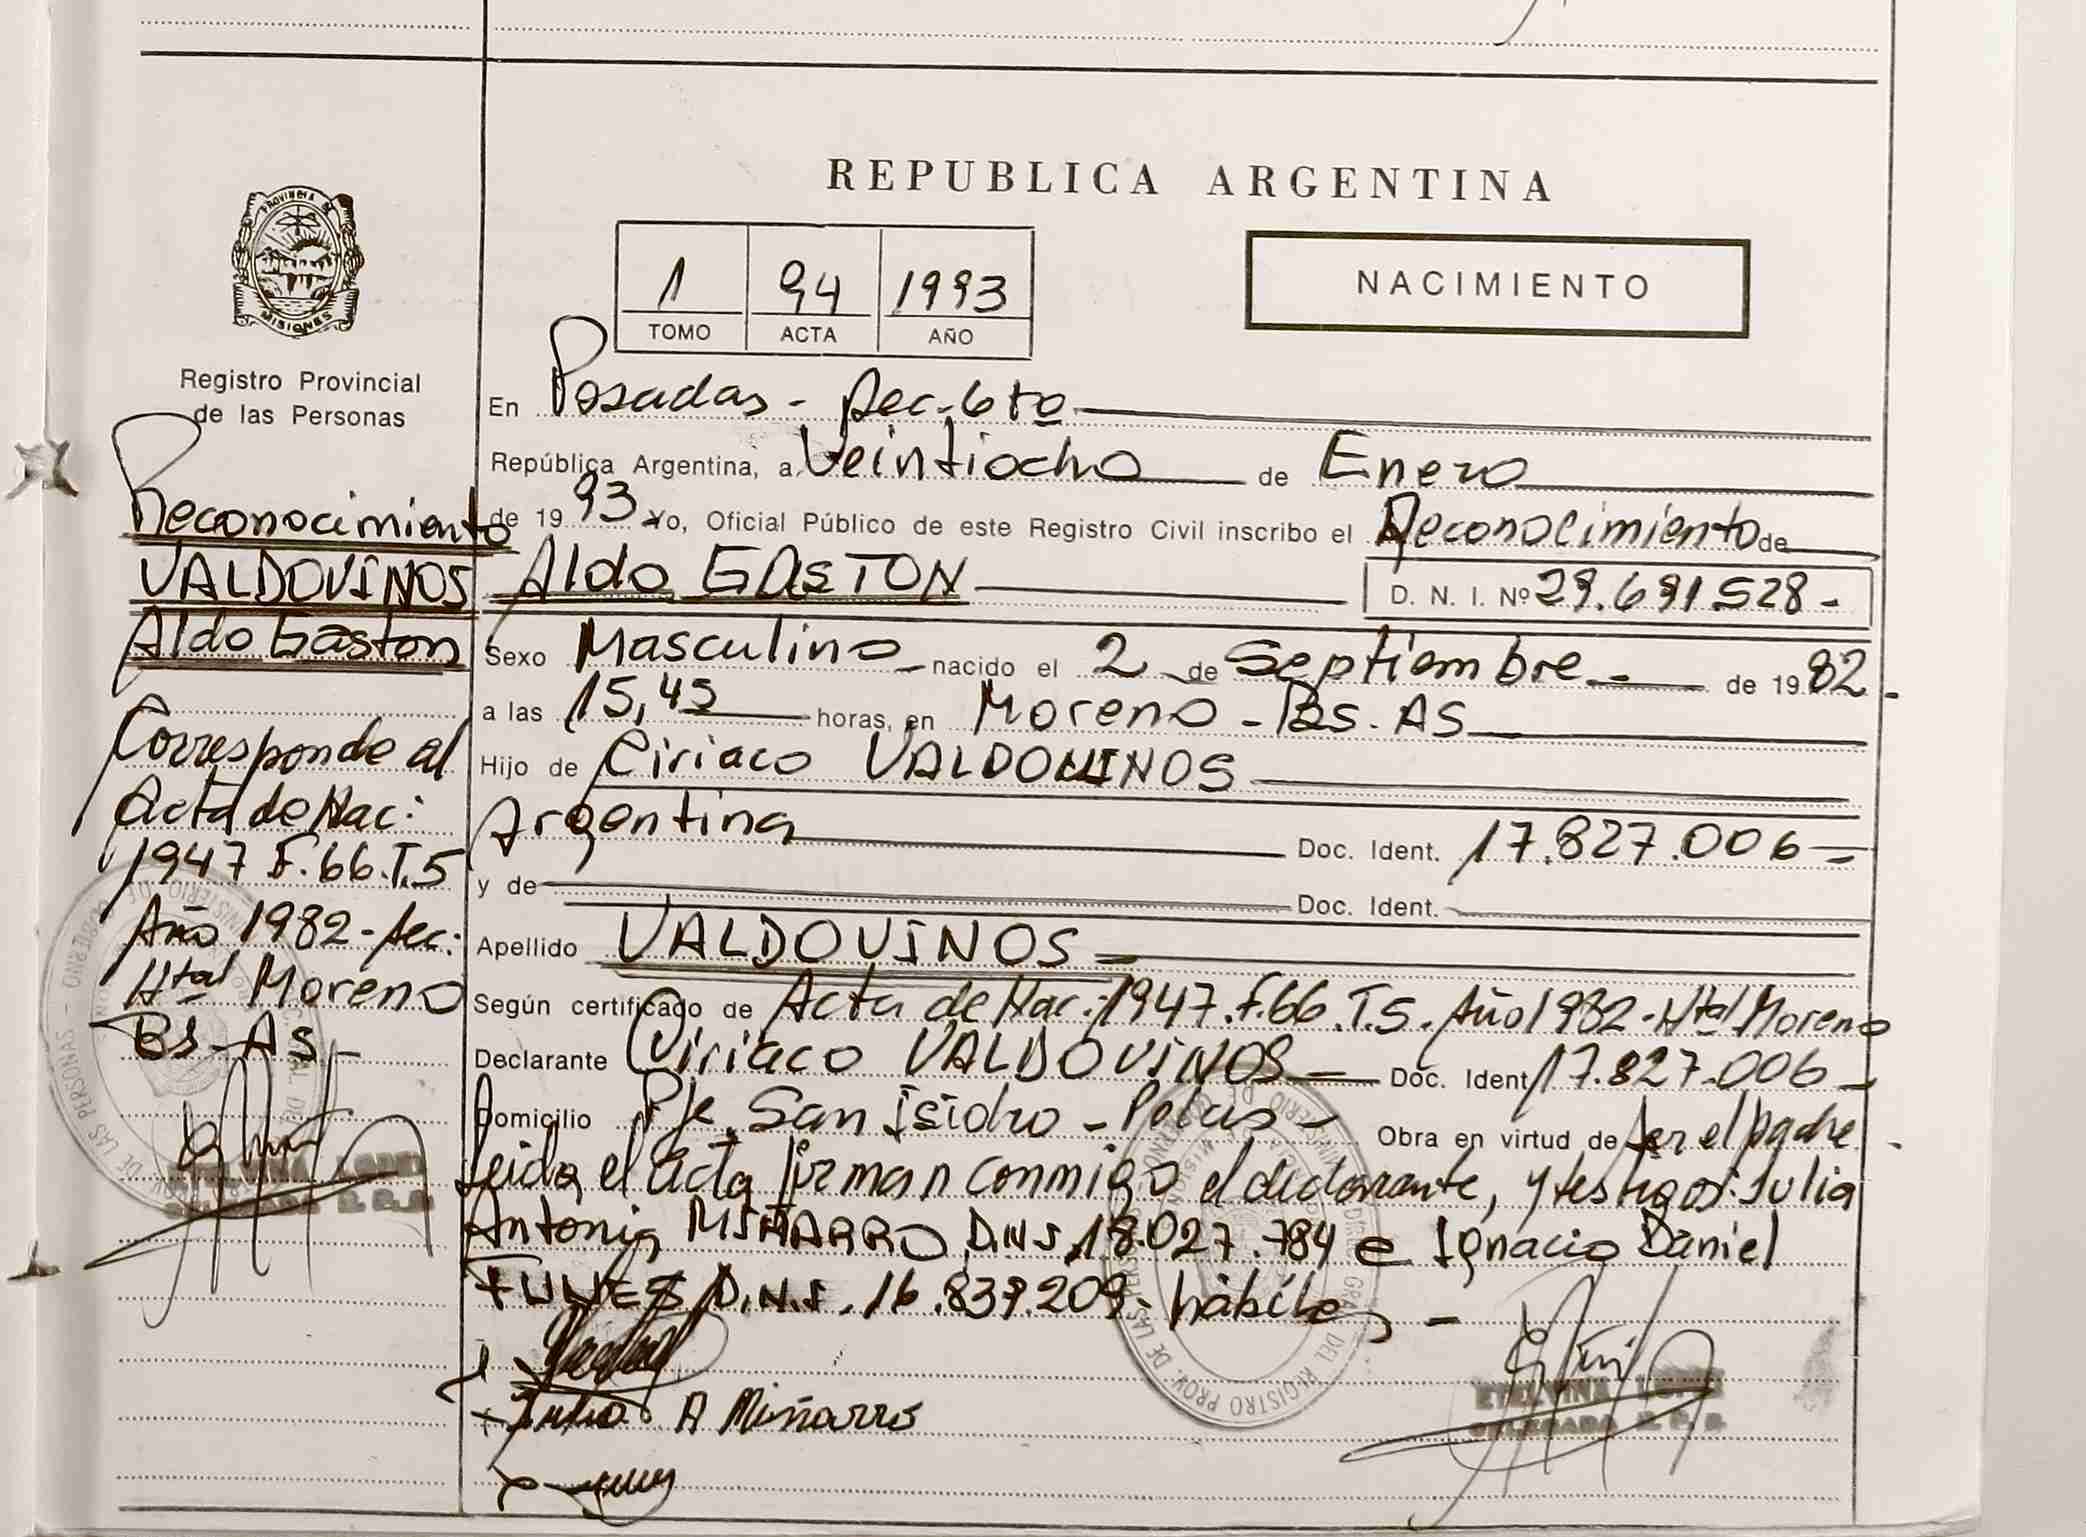 REPUBLICA ARGENTINA
PROVINCIA DE
MISIONES
Registro Provincial
de las Personas
1 94 1993
TOMO ACTA AÑO
NACIMIENTO
Reconocimiento
VALDOVINOS
Aldo Gaston
Corresponde al
Acta de Nac:
1947 F.66.T.5
Año 1982-Sec:
Htal Moreno
BS-AS-
ETELVINA LOPEZ
DELEGADA
En Posadas - Sec. 6to
República Argentina, a Veintiocho de Enero
de 19 93 Yo, Oficial Público de este Registro Civil inscribo el Reconocimiento de
Aldo GASTON D. N. I. Nº 29.691.528-
Sexo Masculino nacido el 2 de Septiembre de 19 82-
a las 15,45 horas, en Moreno - Bs. AS
Hijo de Ciriaco VALDOVINOS
Argentina Doc. Ident. 17.827.006-
y de Doc. Ident.
Apellido VALDOVINOS-
Según certificado de Acta de Nac: 1947.F.66.T.5. Año 1982-Htal Moreno
Declarante Ciriaco VALDOVINOS- Doc. Ident 17.827.006-
Domicilio Pje San Isidro - Pdas- Obra en virtud de ser el padre.
Leida el acta firman conmigo el declarante, y testigos: Julia
Antonia MIÑARRO D.N.I. 18.027.784 e Ignacio Daniel
FUNES D.N.I. 16.839.209- hábiles-
Julia A Miñarro
ETELVINA LOPEZ
DELEGADA